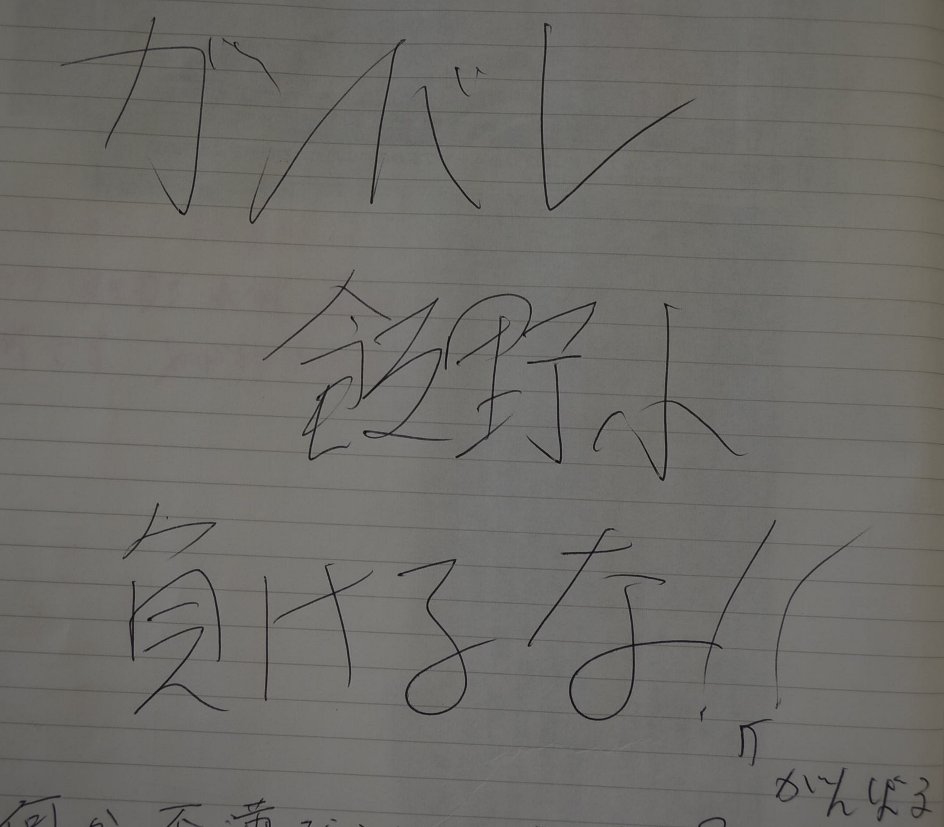 ガンバレ
飯野小
負けるな!!
がんばる
何か不満